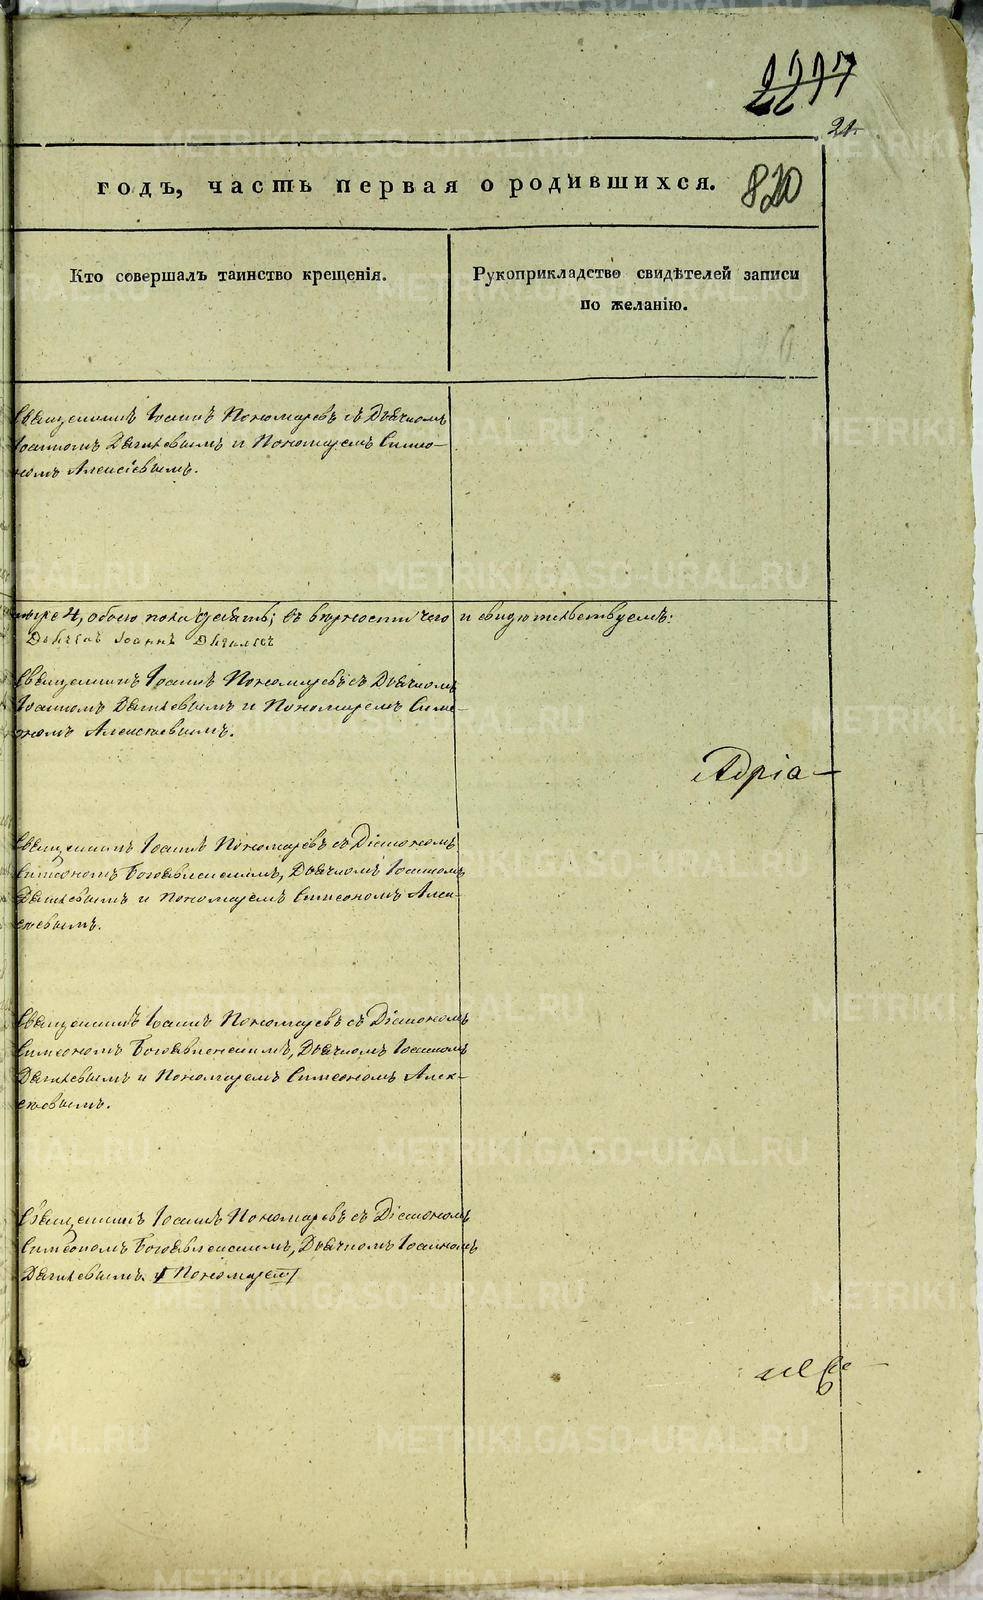 2277
21.
годъ, часть первая о родившихся.
820
Кто совершалъ таинство крещенія.
Рукоприкладство свидѣтелей записи
по желанію.
Священникъ Іоаннъ Пономаревъ съ Дьячкомъ
Іоанномъ Дягилевымъ и Пономаремъ Симео-
номъ Алексіевымъ.
4, обоего пола девять; въ вѣрности чего и свидѣтельствуемъ:
Іоаннъ Дягилевъ
Священникъ Іоаннъ Пономаревъ съ Дьячкомъ
Іоанномъ Дягилевымъ и Пономаремъ Симе-
ономъ Алексѣевымъ.
Адріа-
Священникъ Іоаннъ Пономаревъ съ Діакономъ
Симеономъ Богоявленскимъ, Дьячкомъ Іоанномъ
Дягилевымъ и Пономаремъ Симеономъ Алек-
сѣевымъ.
Священникъ Іоаннъ Пономаревъ съ Діакономъ
Симеономъ Богоявленскимъ, Дьячкомъ Іоанномъ
Дягилевымъ и Пономаремъ Симеономъ Алек-
сѣевымъ.
Священникъ Іоаннъ Пономаревъ съ Діакономъ
Симеономъ Богоявленскимъ, Дьячкомъ Іоанномъ
Дягилевымъ и Пономарем
METRIKI.GASO-URAL.RU